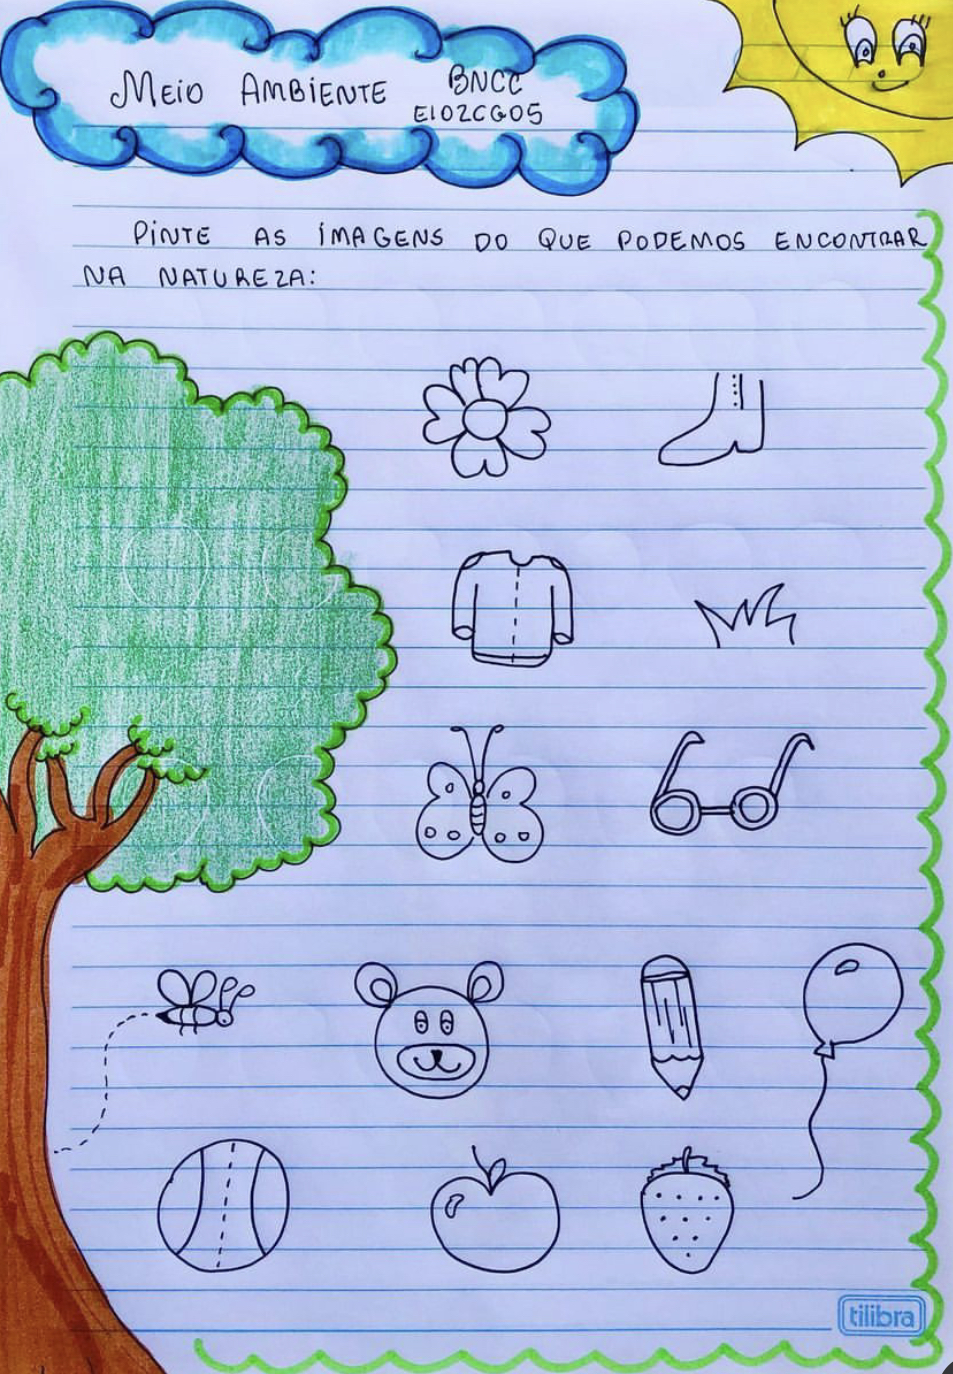 MEIO AMBIENTE BNCC
EI02CG05
PINTE AS IMAGENS DO QUE PODEMOS ENCONTRAR
NA NATUREZA:
tilibra